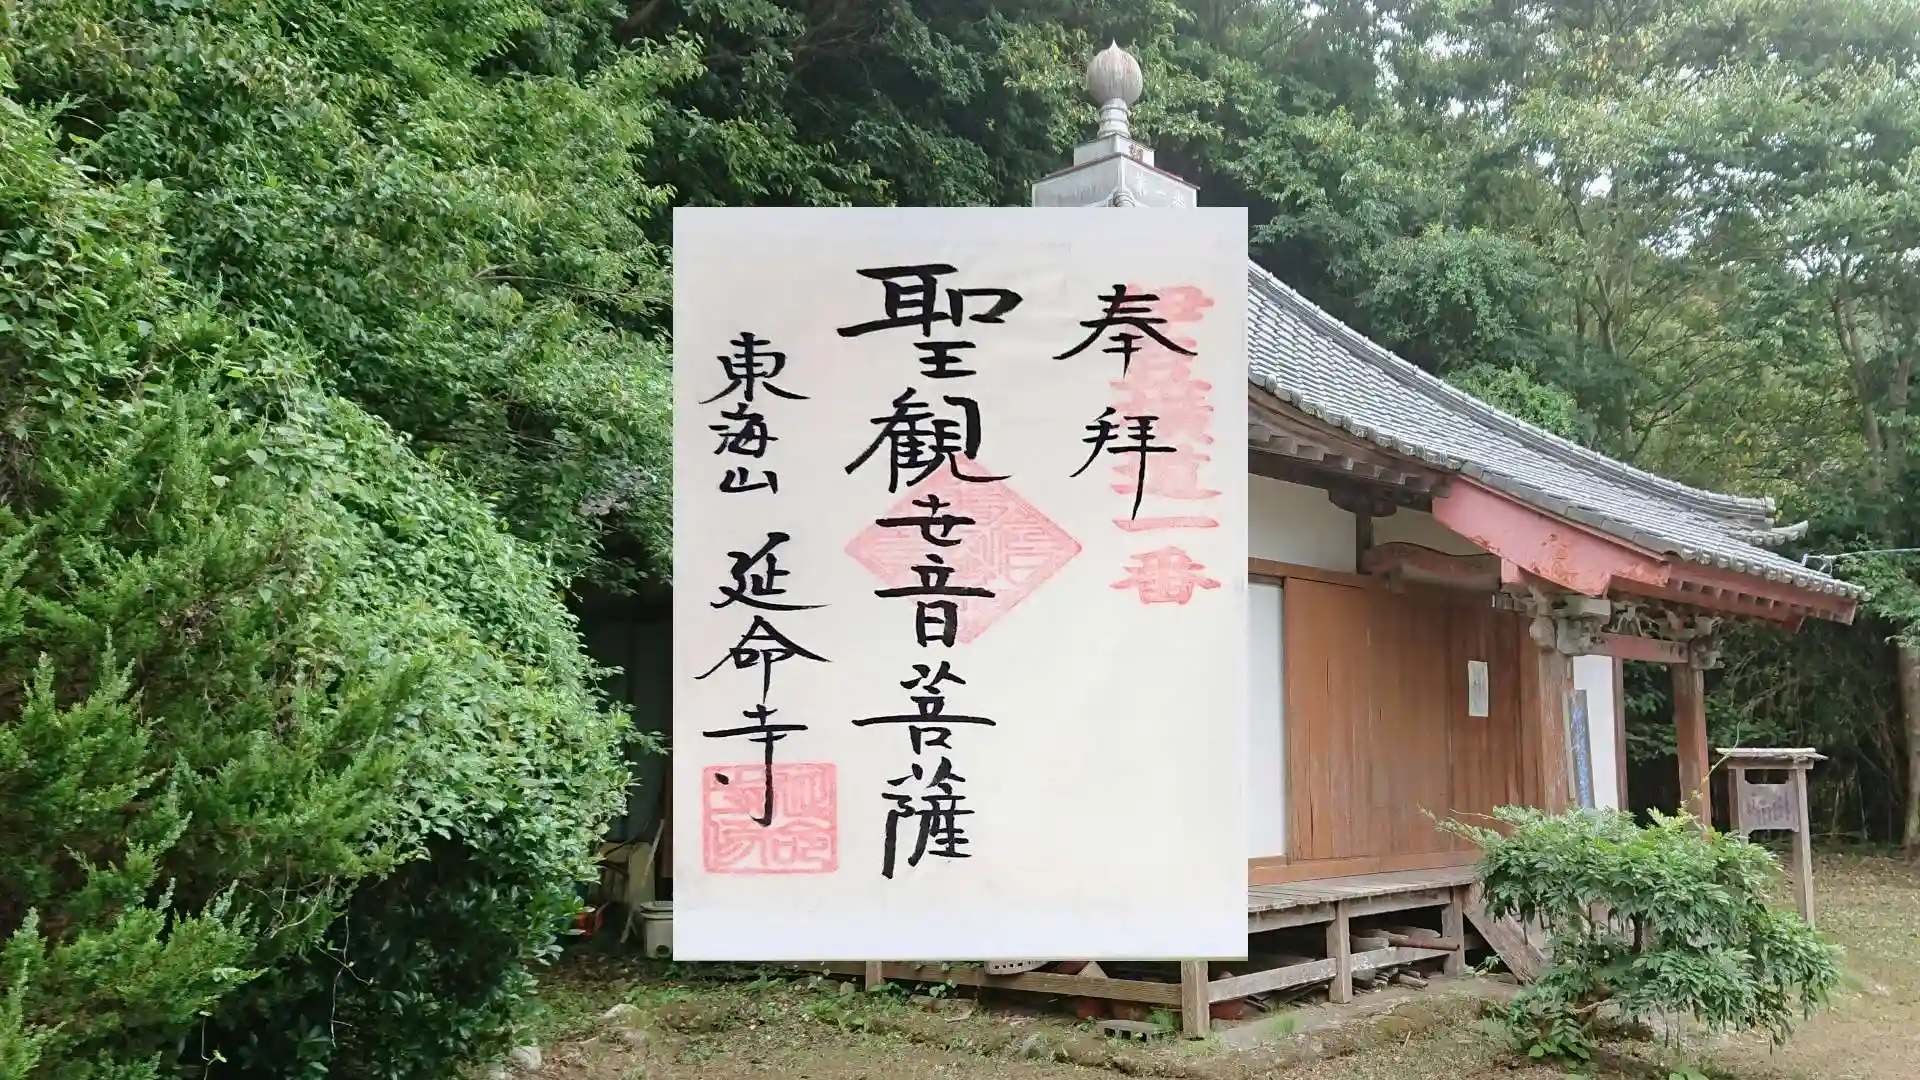 伊豆横道一番
奉拝
聖観世音菩薩
東海山 延命寺